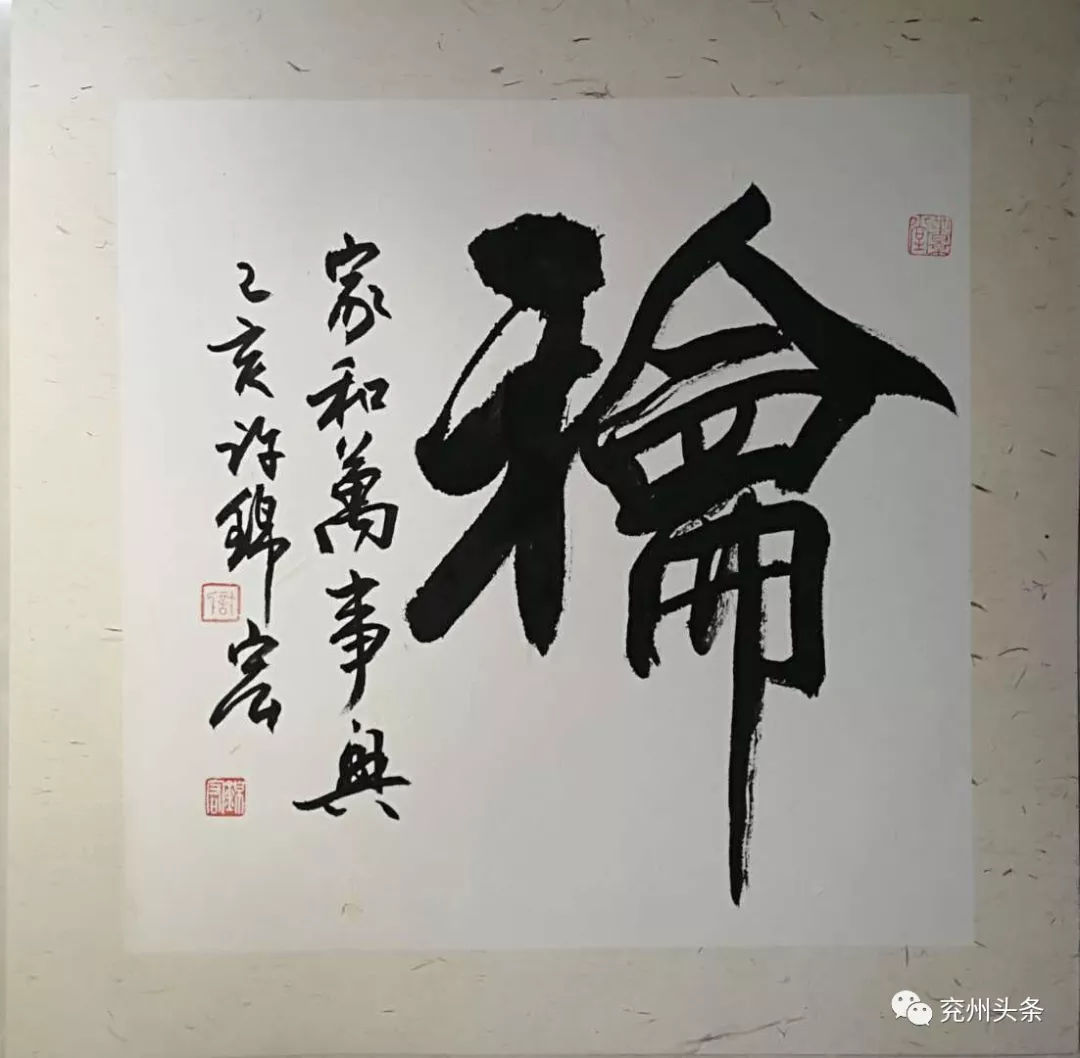 龢
家和萬事興
己亥许錦宏
兖州头条